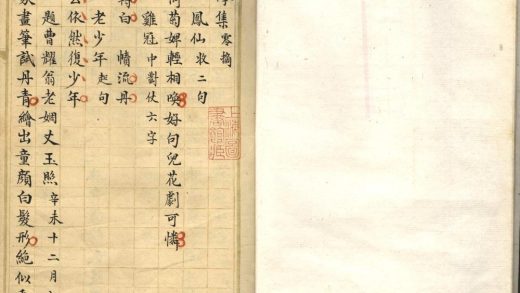 集零摘
鳳仙收二句
菊婢輕相喚好句兒花劇可憐
雞冠中對仗六字
得白幡流丹
老少年起句
依然復少年
題曹耀翁老姻丈玉照 辛未十二月
畫筆試丹青繪出童顏白髮形絶似
上海圖書館藏